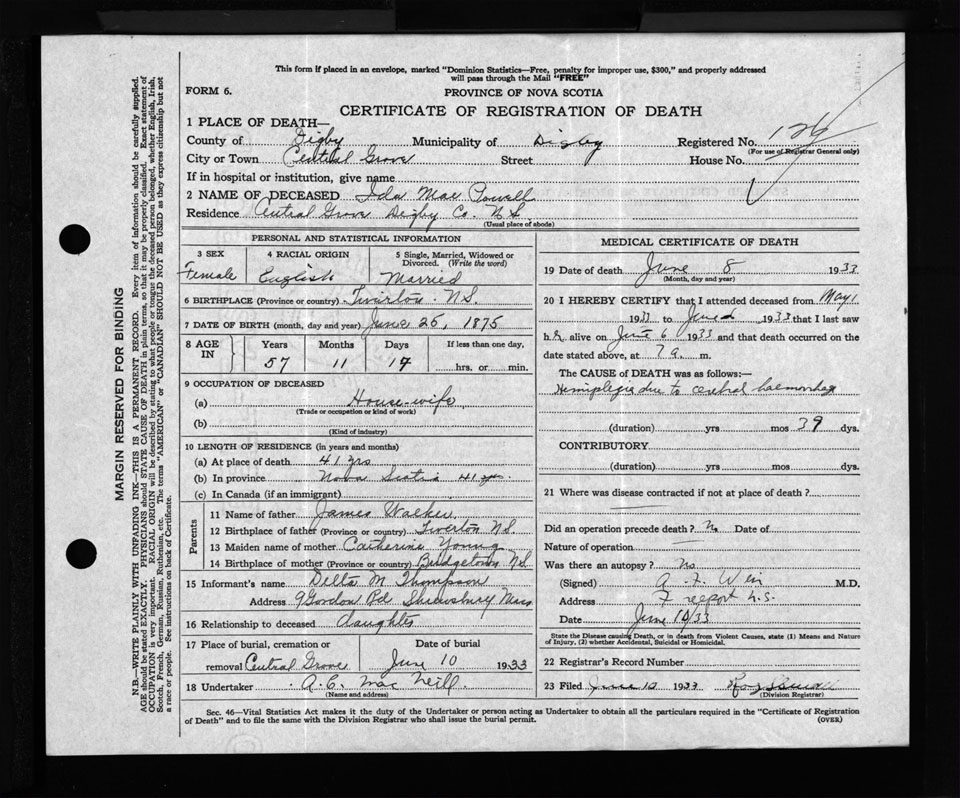 This form if placed in an envelope, marked "Dominion Statistics—Free, penalty for improper use, $300," and properly addressed
will pass through the Mail "FREE"
FORM 6.
PROVINCE OF NOVA SCOTIA
CERTIFICATE OF REGISTRATION OF DEATH
1 PLACE OF DEATH—
County of Digby Municipality of Digby Registered No. 126
(For use of Registrar General only)
City or Town Central Grove Street House No.
If in hospital or institution, give name
2 NAME OF DECEASED Ida Mae Powell
Residence Central Grove Digby Co. N.S.
(Usual place of abode)
PERSONAL AND STATISTICAL INFORMATION
3 SEX 4 RACIAL ORIGIN 5 Single, Married, Widowed or
Divorced. (Write the word)
Female English Married
6 BIRTHPLACE (Province or country) Tiverton N.S.
7 DATE OF BIRTH (month, day and year) June 25, 1875
8 AGE IN Years Months Days If less than one day,
57 11 14 hrs. or min.
9 OCCUPATION OF DECEASED
(a) House-wife
(Trade or occupation or kind of work)
(b)
(Kind of industry)
10 LENGTH OF RESIDENCE (in years and months)
(a) At place of death 41 yrs
(b) In province Nova Scotia 41 yrs.
(c) In Canada (if an immigrant)
Parents
11 Name of father James Walker
12 Birthplace of father (Province or country) Tiverton N.S.
13 Maiden name of mother Catherine Young
14 Birthplace of mother (Province or country) Bridgetown N.S.
15 Informant's name Della M Thompson
Address 9 Gordon Rd Shrewsbury Mass
16 Relationship to deceased daughter
17 Place of burial, cremation or Date of burial
removal Central Grove June 10 1933
18 Undertaker A. C. Mac Neill
(Name and address)
MEDICAL CERTIFICATE OF DEATH
19 Date of death June 8 1933
(Month, day and year)
20 I HEREBY CERTIFY that I attended deceased from May 1
1933 to June 6, 1933 that I last saw
her alive on June 6 1933 and that death occurred on the
date stated above, at 7 a. m.
The CAUSE OF DEATH was as follows:—
Hemiplegia due to cerebral haemorrhage
(duration) yrs mos 39 dys.
CONTRIBUTORY
(duration) yrs mos dys.
21 Where was disease contracted if not at place of death?
Did an operation precede death? No Date of
Nature of operation —
Was there an autopsy? No
(Signed) A. F. Weir M.D.
Address Freeport N.S.
Date June 10/33
State the Disease causing Death, or in death from Violent Causes, state (1) Means and Nature
of Injury, (2) whether Accidental, Suicidal or Homicidal.
22 Registrar's Record Number
23 Filed June 10 1933
(Division Registrar)
Sec. 46—Vital Statistics Act makes it the duty of the Undertaker or person acting as Undertaker to obtain all the particulars required in the "Certificate of Registration
of Death" and to file the same with the Division Registrar who shall issue the burial permit. (OVER)
MARGIN RESERVED FOR BINDING
N.B.—WRITE PLAINLY WITH UNFADING INK—THIS IS A PERMANENT RECORD. Every item of information should be carefully supplied.
AGE should be stated EXACTLY. PHYSICIANS should STATE CAUSE OF DEATH in plain terms, so that it may be properly classified. Exact statement of
OCCUPATION is very important. RACIAL ORIGIN will be described by stating to what people or tongue the deceased person belonged, whether English, Irish,
Scotch, French, German, Russian, Ruthenian, etc. The terms "AMERICAN" or "CANADIAN" SHOULD NOT BE USED as they express citizenship but not
a race or people. See instructions on back of Certificate.